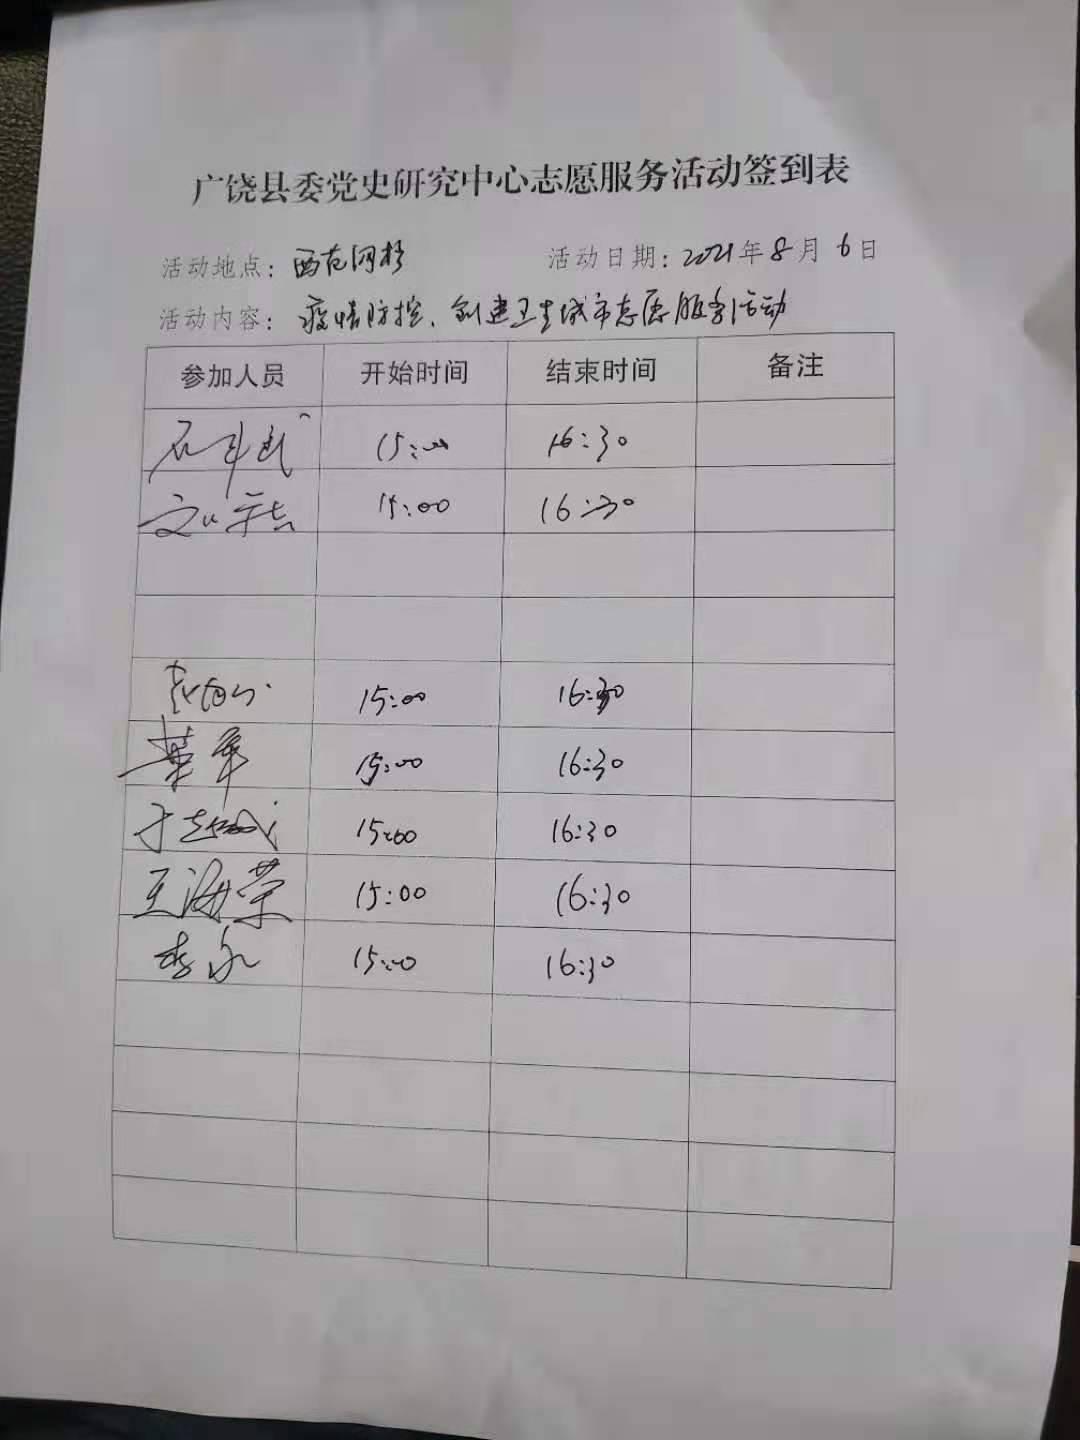 广饶县委党史研究中心志愿服务活动签到表
活动地点: 西范 活动日期: 2021年8月6日
活动内容: 疫情防控、创建卫生城市志愿服务活动
参加人员 开始时间 结束时间 备注
15:00 16:30
15:00 16:30
15:00 16:30
15:00 16:30
15:00 16:30
王海荣 15:00 16:30
李永 15:00 16:30